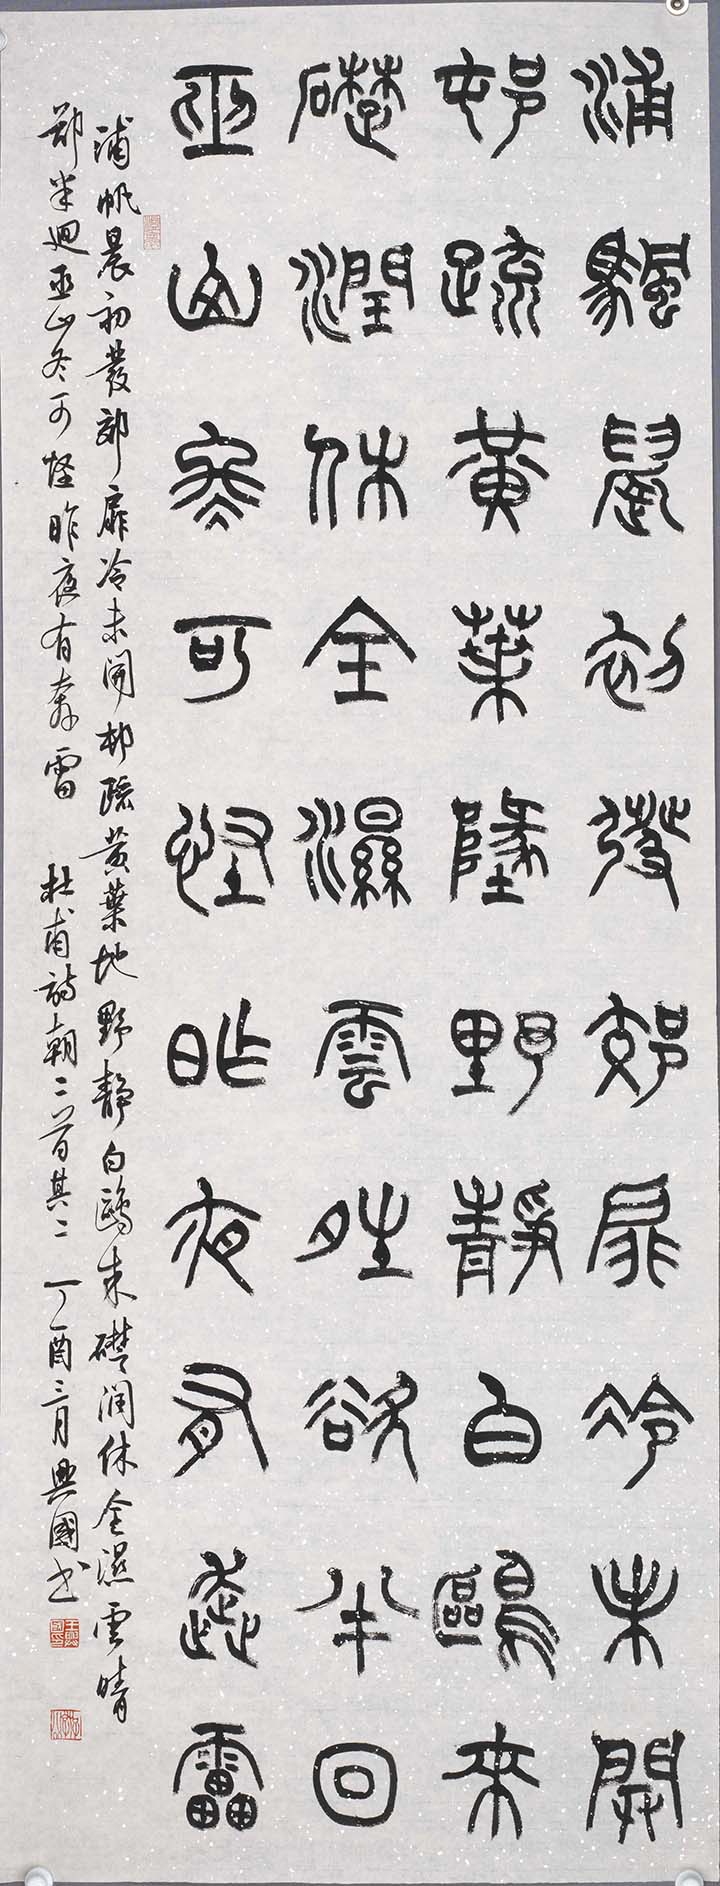 浦颿晨初發郊扉冷未開
邨疏黃葉墜野靜白鷗來
礎潤休全濕雲晴欲半回
巫山冬可怪昨夜有奔雷
浦帆晨初發郊扉冷未開邨疏黃葉地野靜白鷗來礎潤休全濕雲晴
欲半迴巫山冬可怪昨夜有奔雷 杜甫詩朝二首其二 丁酉三月興國書